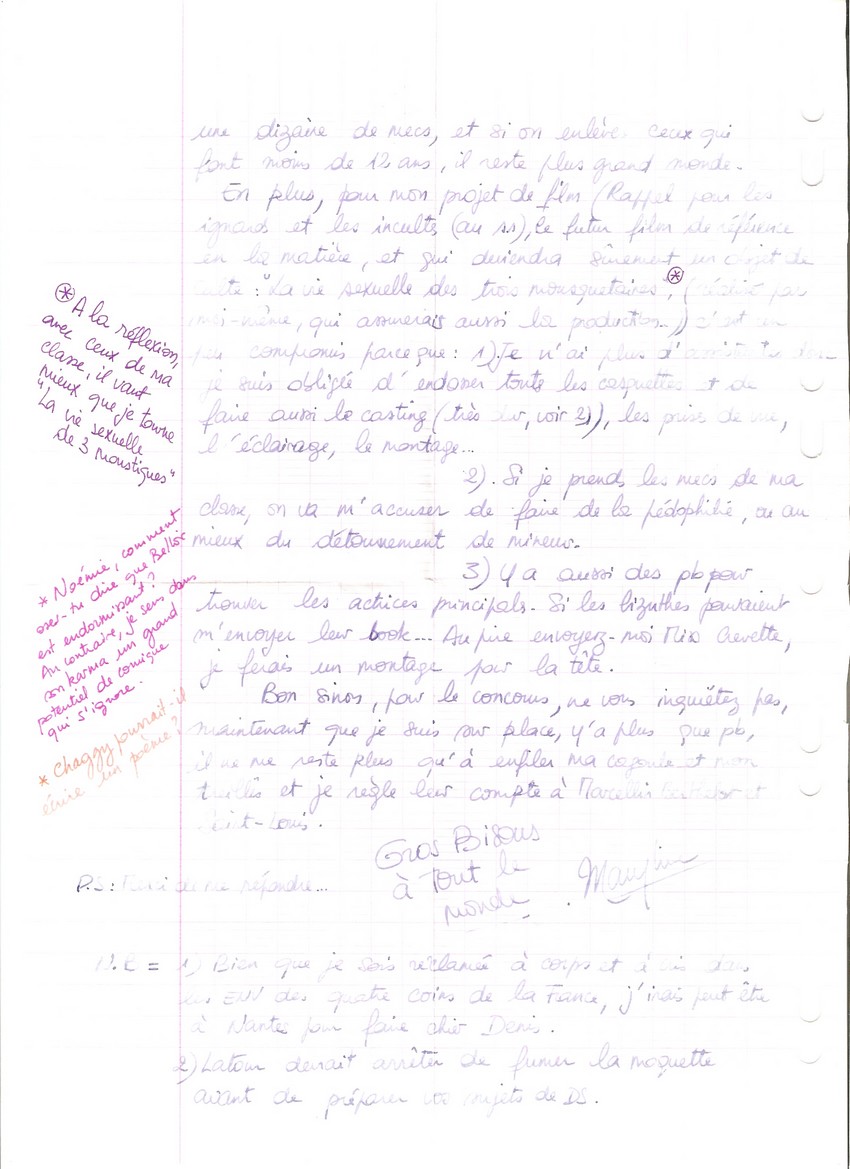 une dizaine de mecs, et si on enlève ceux qui
font moins de 12 ans, il reste plus grand monde.
En plus, pour mon projet de film (Rappel pour les
ignards et les incultes (au ss), le futur film de référence
en la matière, et qui deviendra sûrement un objet de
culte : "La vie sexuelle des trois mousquetaires", (réalisé par
moi-même, qui assumerais aussi la production...) c'est un
peu compromis parce que : 1) Je n'ai plus d'assistante donc
je suis obligée d'endosser toute les casquettes et de
faire aussi le casting (très dur, voir 2)), les prises de vue,
l'éclairage, le montage...
2). Si je prends les mecs de ma
classe, on va m'accuser de faire de la pédophilie, ou au
mieux du détournement de mineur.
3) Y a aussi des pb pour
trouver les actrices principals. Si les bizuthes pouvaient
m'envoyer leur book... Au pire envoyez-moi Miss Crevette,
je ferais un montage pour la tête.
Bon sinon, pour le concours, ne vous inquiétez pas,
maintenant que je suis sur place, y'a plus que pb,
il ne me reste plus qu'à enfiler ma cagoule et mon
treillis et je règle leur compte à Marcellin Berthelot et
Saint-Louis.
Gros Bisous
à Tout le
monde.
P.S : Merci de me répondre...
N.B = 1) Bien que je sois réclamée à corps et à cris dans
les ENV des quatre coins de la France, j'irais peut être
à Nantes pour faire chier Denis.
2) Latour devrait arrêter de fumer la moquette
avant de préparer vos sujets de DS.
* A la réflexion,
avec ceux de ma
classe, il vaut
mieux que je tourne
"La vie sexuelle
de 3 moustiques"
* Noémie, comment
oses-tu dire que
est endormissant ?
Au contraire, je sens dans
son karma un grand
potentiel de comique
qui s'ignore.
* Chaggy pourrait-il
écrire un poème ?